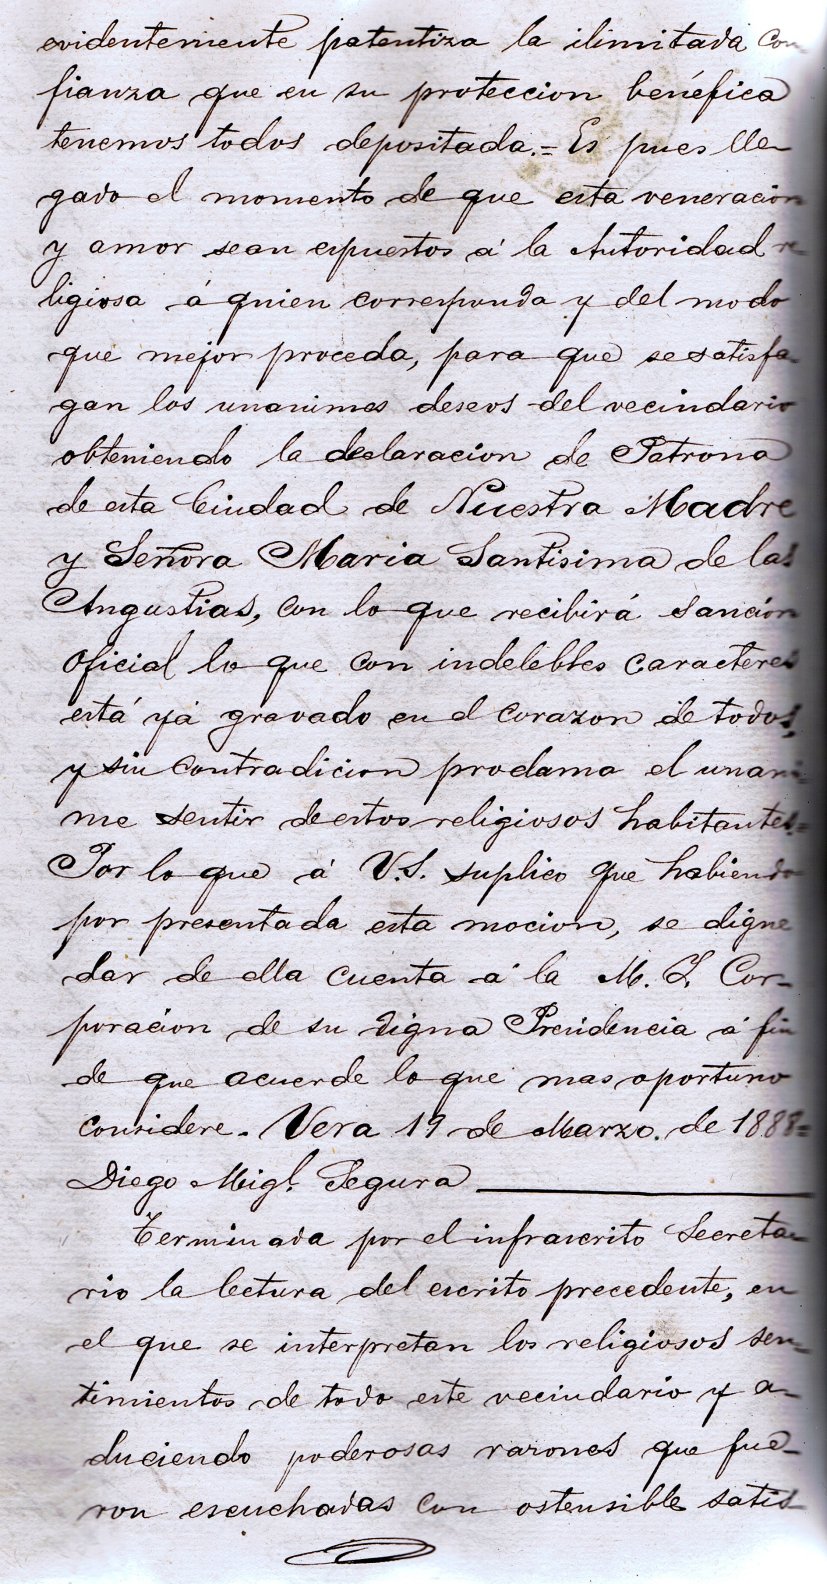 evidentemente patentiza la ilimitada con
fianza que en su proteccion benéfica
tenemos todos depositada.= Es pues lle-
gado el momento de que esta veneracion
y amor sean espuestos á la Autoridad re
ligiosa á quien corresponda y del modo
que mejor proceda, para que se satisfa-
gan los unanimes deseos del vecindario
obteniendo la declaracion de Patrona
de esta Ciudad de Nuestra Madre
y Señora Maria Santisima de las
Angustias, con lo que recibirá sanción
oficial lo que con indelebles caracteres
está yá gravado en el corazon de todos,
y sin contradicion proclama el unani-
me sentir de estos religiosos habitantes.=
Por lo que á V.S. suplico que habiendo
por presentada esta mocion, se digne
dar de ella cuenta á la M. I. Cor-
poracion de su digna Presidencia á fin
de que acuerde lo que mas oportuno
considere. Vera 19 de Marzo. de 1888=
Diego Migl. Segura
Terminada por el infrascrito Secreta-
rio la lectura del escrito precedente, en
el que se interpretan los religiosos sen-
timientos de todo este vecindario y a-
duciendo poderosas razones que fue-
ron escuchadas con ostensible satis-